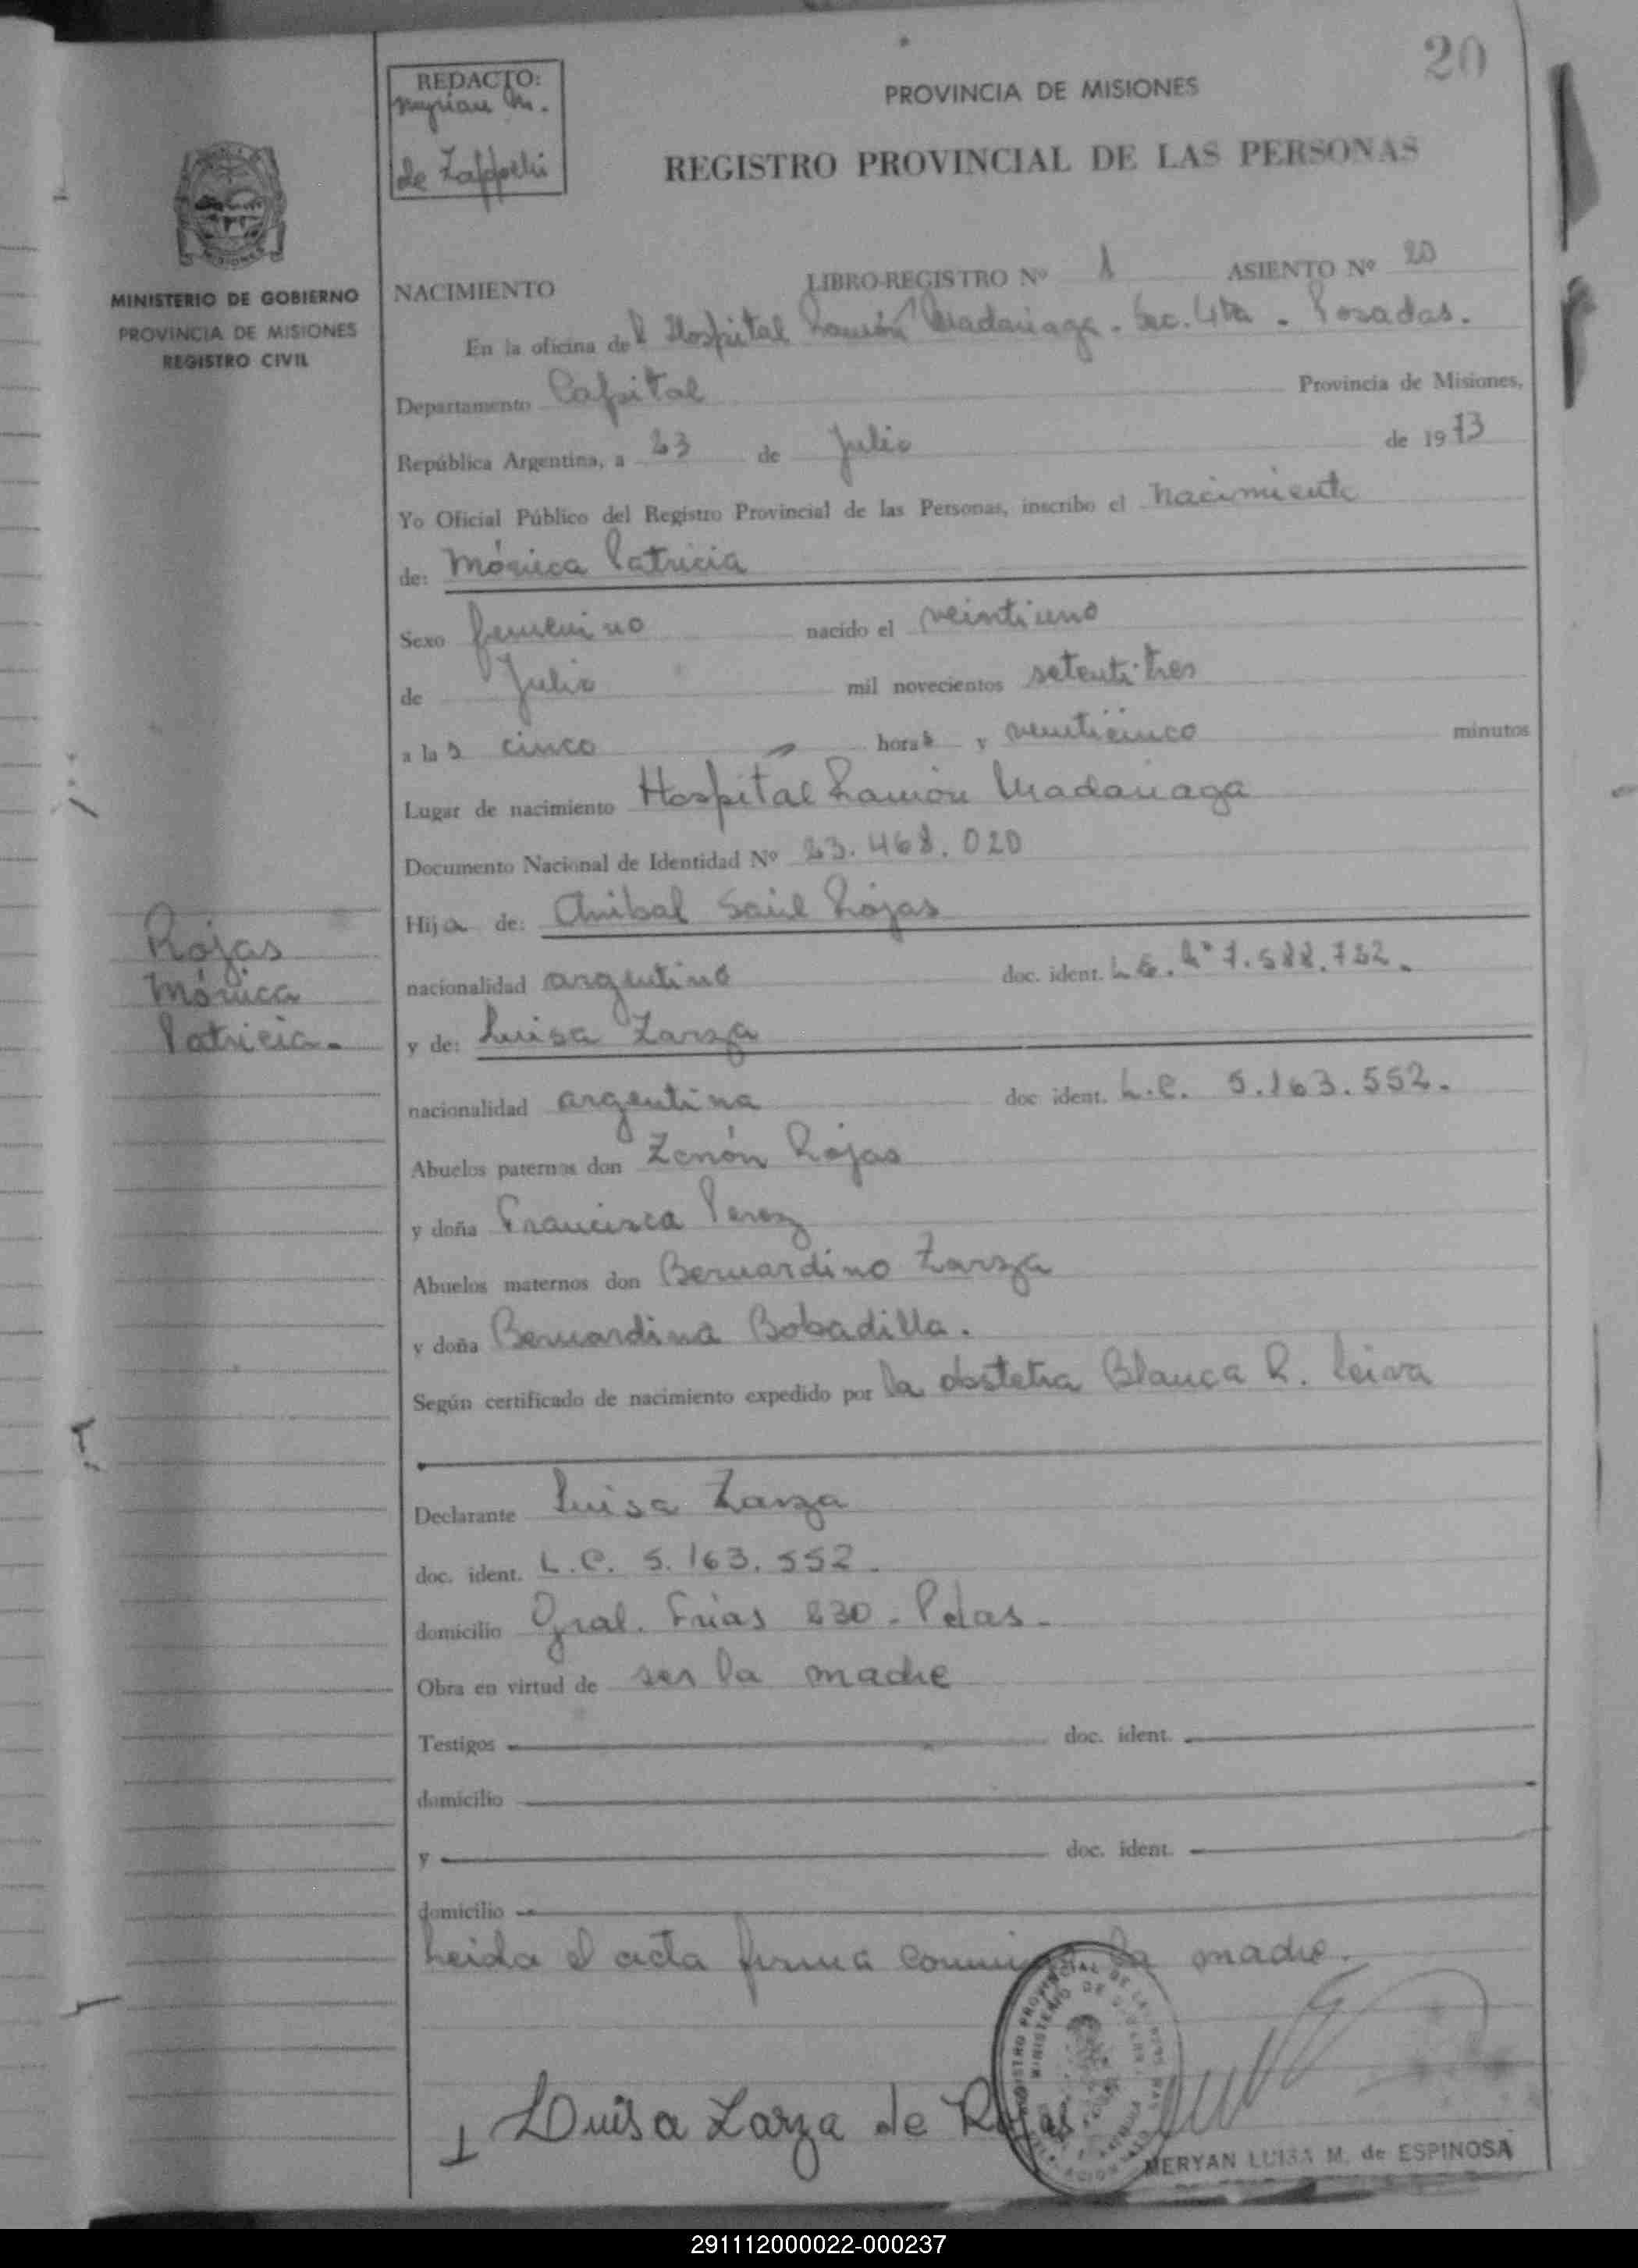 20
REDACTO:
Myrian M.
de Zappelli
PROVINCIA DE MISIONES
REGISTRO PROVINCIAL DE LAS PERSONAS
MISIONES
MINISTERIO DE GOBIERNO
PROVINCIA DE MISIONES
REGISTRO CIVIL
NACIMIENTO LIBRO-REGISTRO Nº 1 ASIENTO Nº 20
En la oficina del Hospital Ramón Madariaga. Sec. 4ta - Posadas.
Departamento Capital Provincia de Misiones,
República Argentina, a 23 de Julio de 1973
Yo Oficial Público del Registro Provincial de las Personas, inscribo el nacimiento
de: Mónica Patricia
Sexo femenino nacido el veintiuno
de Julio mil novecientos setenti tres
a las cinco horas y veinticinco minutos
Lugar de nacimiento Hospital Ramón Madariaga
Documento Nacional de Identidad Nº 23.468.020
Hija de: Anibal Saúl Rojas
nacionalidad argentino doc. ident. L.E. Nº 7.588.732.
y de: Luisa Zarza
nacionalidad argentina doc ident. L.C. 5.163.552.
Rojas
Mónica
Patricia.
Abuelos paternos don Zenón Rojas
y doña Francisca Perez
Abuelos maternos don Bernardino Zarza
y doña Bernardina Bobadilla.
Según certificado de nacimiento expedido por la obstetra Blanca R. Leiva
Declarante Luisa Zarza
doc. ident. L.C. 5.163.552.
domicilio Gral. Frias 230 - Pdas.
Obra en virtud de ser la madre
Testigos doc. ident.
domicilio
y doc. ident.
domicilio
Leida el acta firma conmigo la madre.
Luisa Zarza de Rojas
MERYAN LUISA M. de ESPINOSA
291112000022-000237